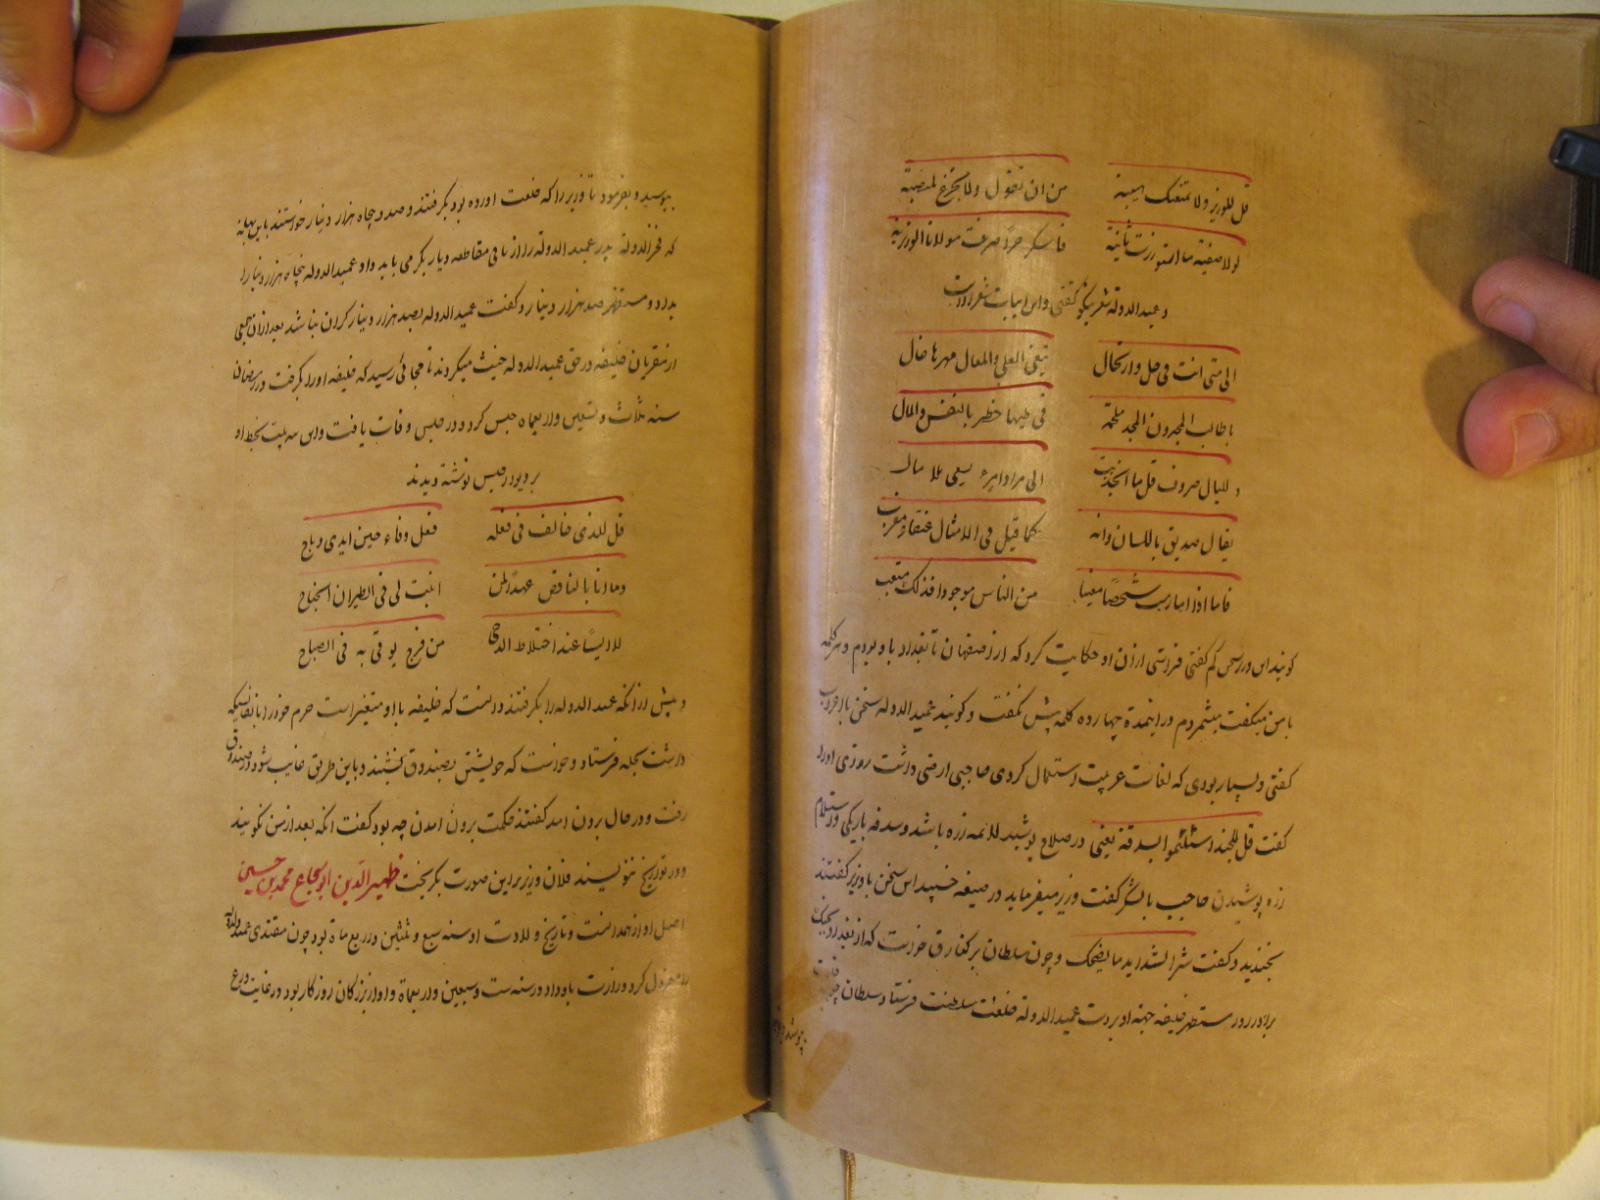 قل للوزیر ولا تفزعک هیبته
من ان تقول ولا تخرج لمنصبه
لولا صفیة ما استوزرت ثانیة
فاشکر حرا صرت مولانا الوزیر به
و عمید الدولة شعر نیکو گفتی و این ابیات شعر اوست
الی متی انت فی حل وارتحال
تبغی العلی والمعالی مهرها غال
یا طالب المجد دون المجد ملحمة
فی طیها خطر بالنفس والمال
و للیال صروف قل ما انجذبت
الی مراد امرء یسعی بلا مال
یقال صدیق باللسان وانه
کما قیل فی الامثال عنقاء مغرب
فاما اذا ما رمت شخصا معینا
من الناس موجودا فذلک متعب
گویند این وزیر سخن کم گفتی فراشی از آن او حکایت کرد که از اصفهان تا بغداد با او بودم و هر کلمه
با من میگفت میشمردم در اینمدة چهارده کلمه بیش نگفت و گویند عمید الدوله سخن با اعراب
گفتی و بسیار بودی که لغات عربیت استعمال کردی حاجبی ارمنی داشت روزی او را
گفت قل للجند استلئموا السدفة یعنی در صلاح پوشید للائمه زره باشد و سدفه باریکی و استلام
زره پوشیدن حاجب با لشکر گفت وزیر میفرماید در صیغه خسپید این سخن با وزیر گفتند
بخندید و گفت شر الشداید ما یضحک و چون سلطان برکیارق خواست که از بغداد بجنگ
برادر رود مستظهر خلیفه جهة او بدست عمید الدولة خلعت سلطنت فرستاد سلطان چون خلعت
پوشید
ببوسید و بفرمود تا وزیر را که خلعت اورده بود بگرفتند و صد و پنجاه هزار دینار خواستند باین بهانه
که فخر الدولة پدر عمید الدوله را از باقی مقاطعه دیار بکر می باید داد و عمید الدوله پنجاه هزار دینار را
بداد و مستظهر صد هزار دینار و گفت عمید الدوله بصد هزار دینار گران نباشد بعد ازان جمعی
از مقربان خلیفه در حق عمید الدوله خبث میکردند تا بجائی رسید که خلیفه او را بگرفت در رمضان
سنه ثلاث و تسعین و اربعماه حبس کرد و در حبس وفات یافت و این سه بیت بخط او
بر دیوار حبس نوشته دیدند
قل للذی خالف فی فعله
فعل وفاء حین ابدی وباح
وما انا بالناقض عهدا لمن
انبت لی فی الطیران الجناح
لا ایسا عند اختلاط الدجی
من فرج یوتی به فی الصباح
و پیش از آنکه عمید الدوله را بگرفتند دانست که خلیفه با او متغیر است حرم خود را با نفایسیکه
داشت بحله فرستاد و خواست که خویشتن بصندوق نشیند و باین طریق غایب شود در صندوق
رفت و در حال برون امد گفتند حکمت برون امدن چه بود گفت انکه بعد از من نگویند
و در تواریخ ننویسند فلان وزیر براین صورت بگریخت ظهیر الدین ابو شجاع محمد بن حسین
اصل او از همدانست و تاریخ ولادت او سنه سبع و ثلثین و اربع ماة بود چون مقتدی عمید الدوله
را معزول کرد وزارت باو داد در سنه ست و سبعین و اربعماة و او از بزرگان روزگار بود در غایت ورع